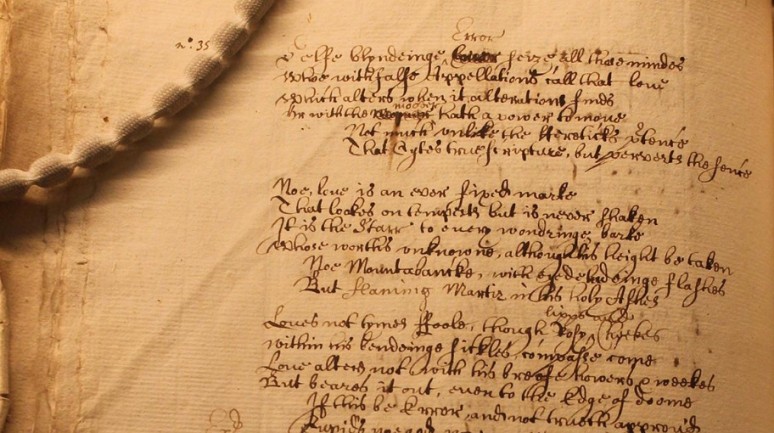 Error
n° 35 Selfe blyndeinge seize all those mindes
Who with false Appellations call that love
Which alters when it alteration finds
moover
Or with the hath a power to move
Not much unlike the Hereticks p̱tence
That Cytes true scripture, but perverts the sence
Noe, love is an ever fixed marke
That lookes on tempests but is never shaken
It is the Starr to every wandringe barke
Whose worths unknowne, although his height be taken
Noe Mountabancke, with eye deludeinge flashes
But flameing Martir in his holy Ashes
lipps and
Loves not tymes ffoole, though Rosy Cheekes
within his bendeinge sickles compasse come
Love alters not with his breefe howers & weekes
But beares it out, even to the Edge of doome
If this be Error, and not truth approv'd